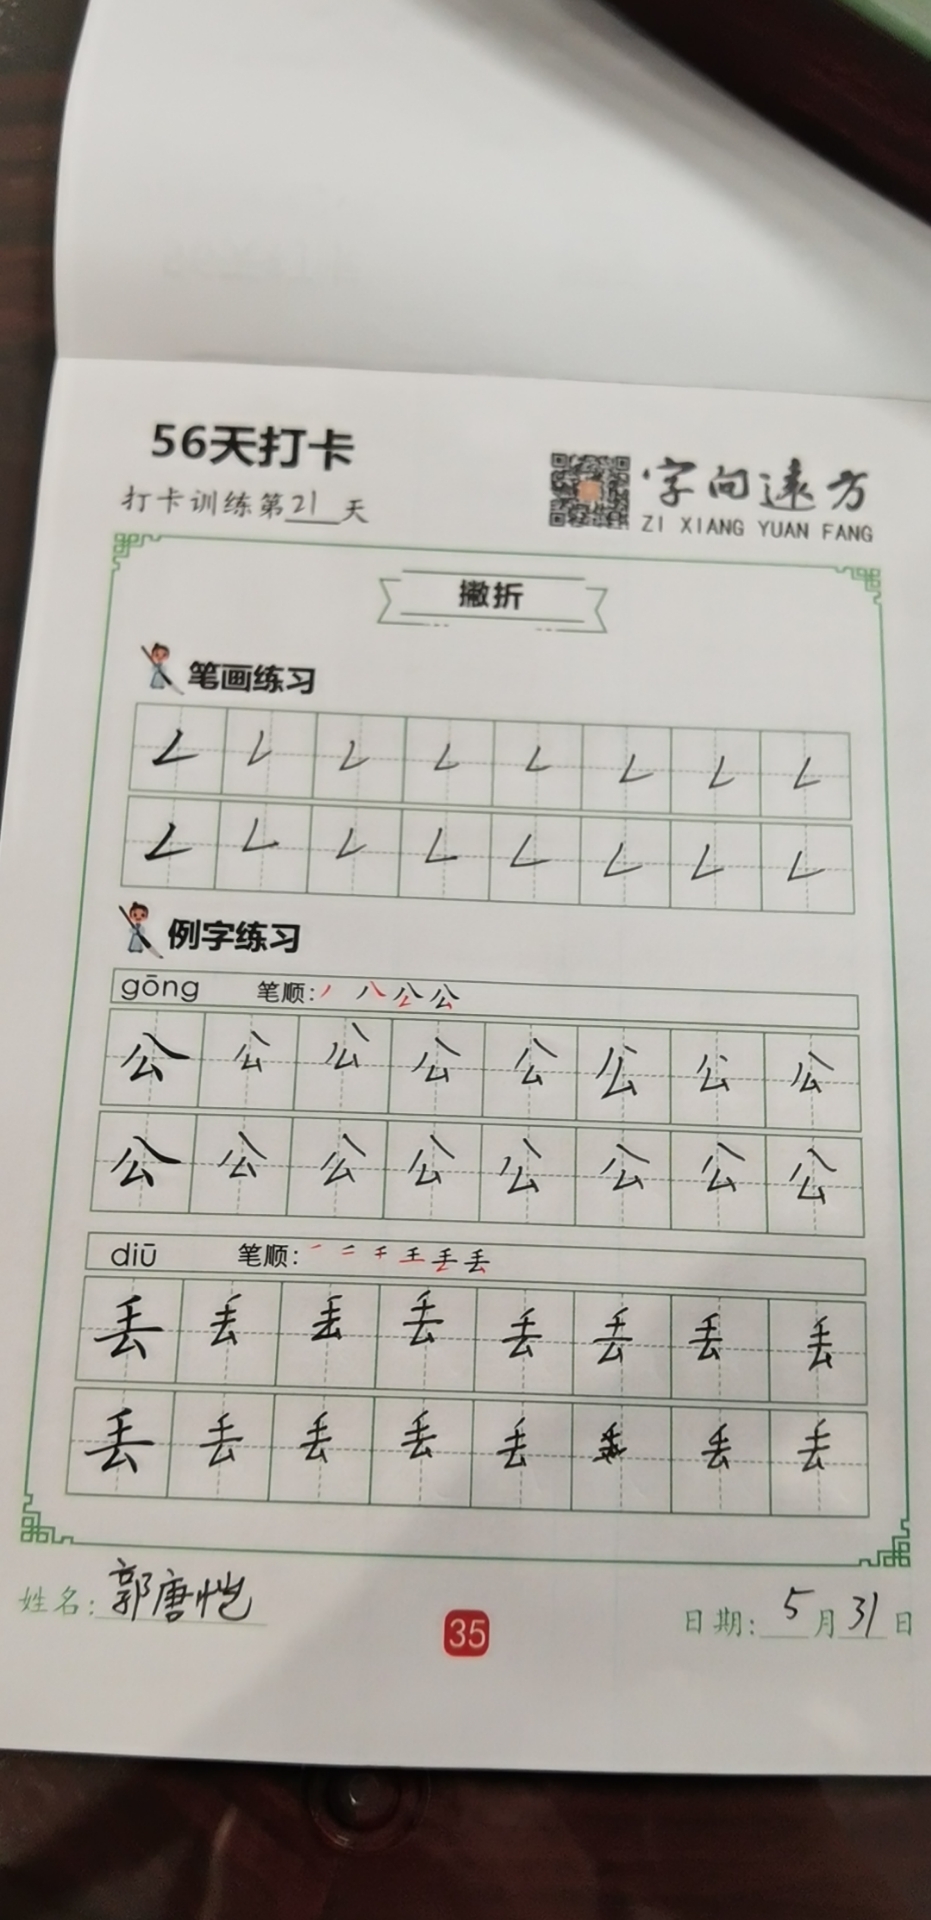 56天打卡
打卡训练第21天
字向远方
ZI XIANG YUAN FANG
撇折
笔画练习
𠃋 𠃋 𠃋 𠃋 𠃋 𠃋 𠃋 𠃋
𠃋 𠃋 𠃋 𠃋 𠃋 𠃋 𠃋 𠃋
例字练习
gōng 笔顺: 丿 八 公 公
公 公 公 公 公 公 公 公
公 公 公 公 公 公 公 公
diū 笔顺: 一 二 千 王 丢 丢
丢 丢 丢 丢 丢 丢 丢 丢
丢 丢 丢 丢 丢 丢 丢
姓名: 郭唐恺
35
日期: 5月31日